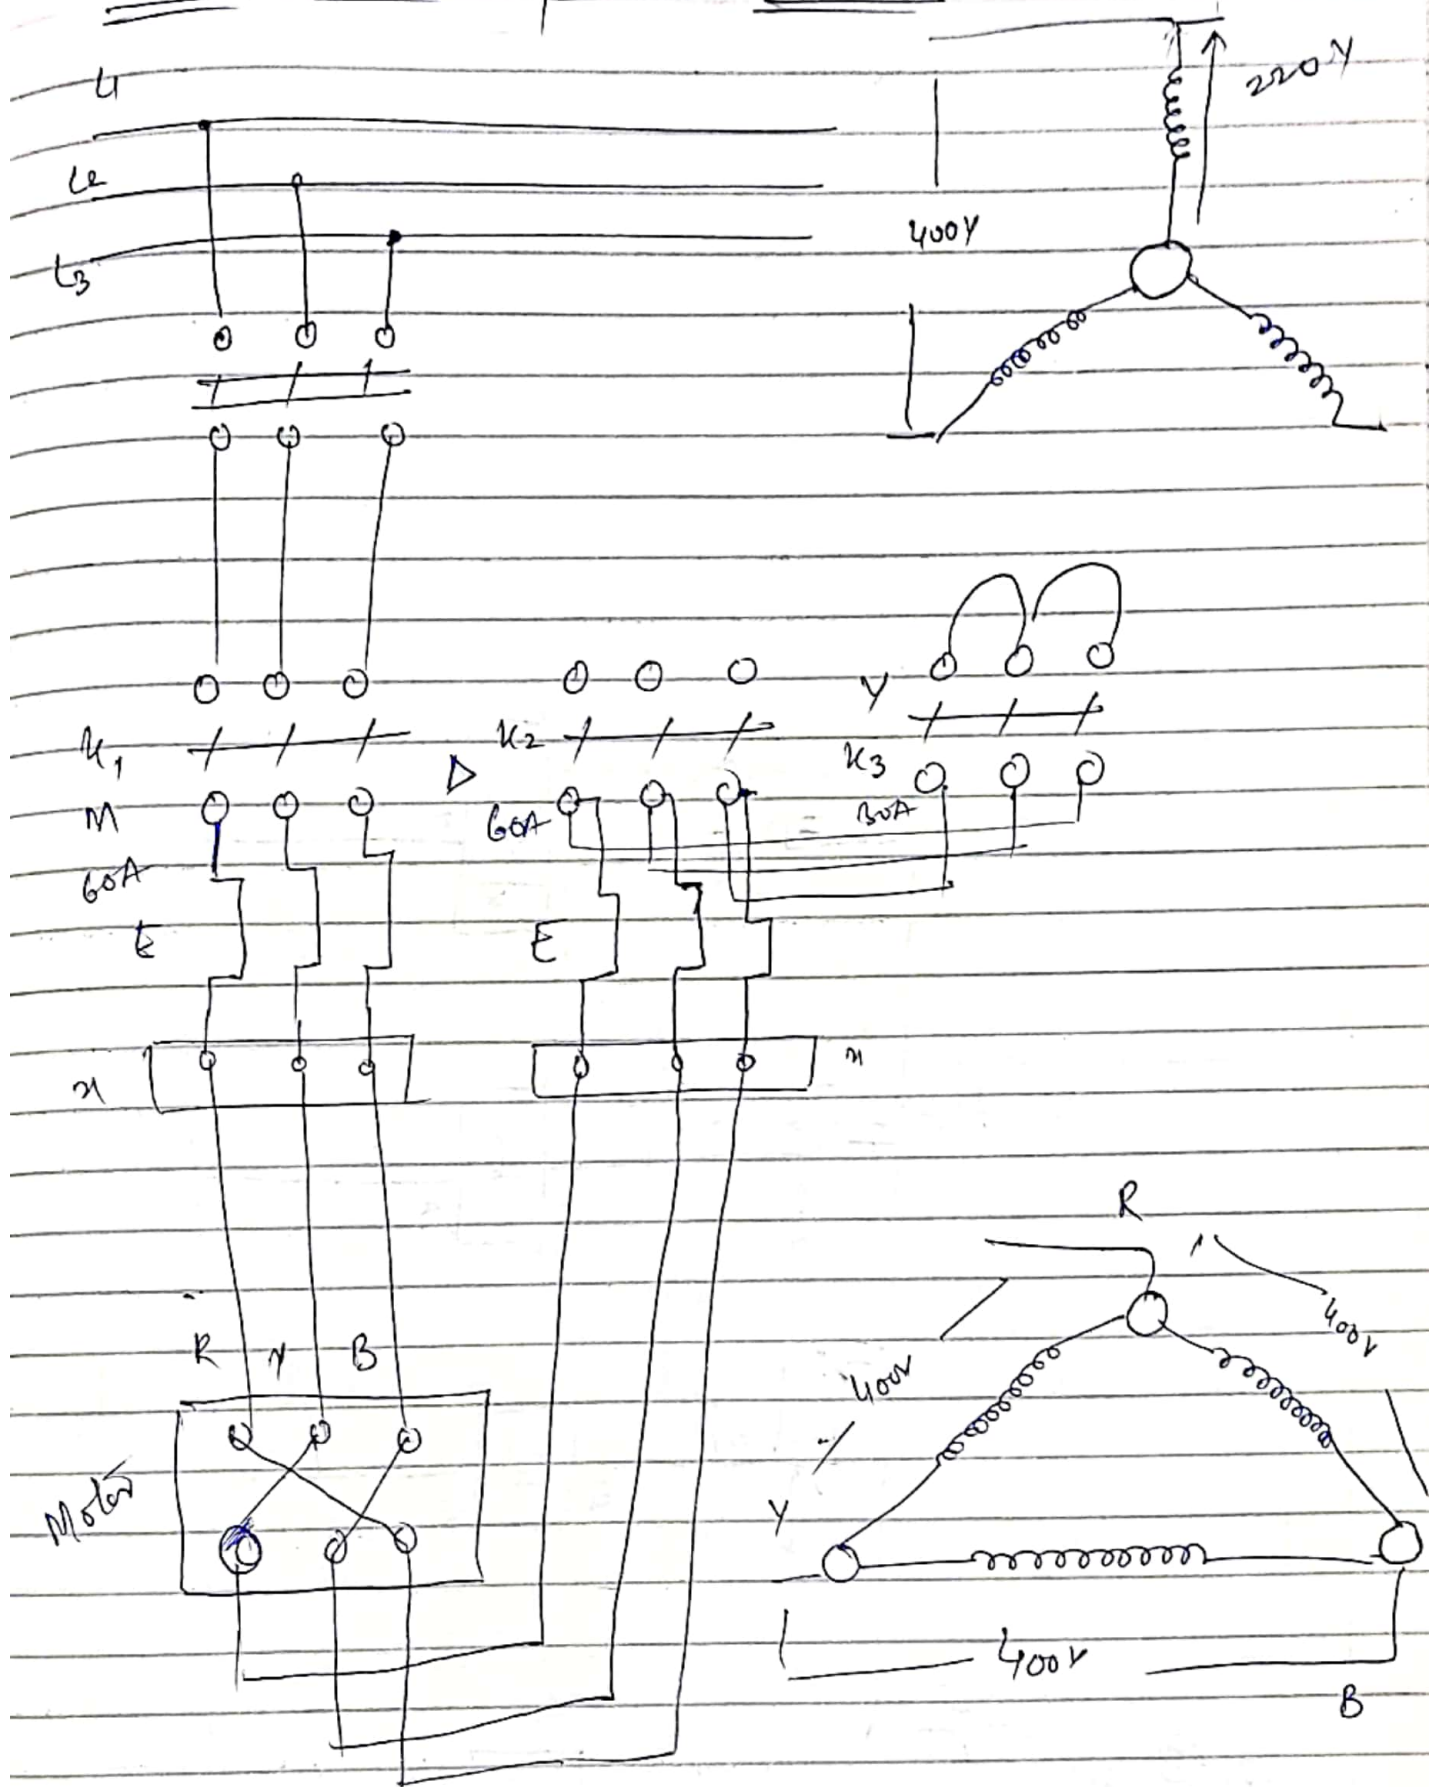 L1
L2
L3
220V
400V
K1
M
60A
E
K2
Δ
60A
Y
K3
30A
E
x
x
R Y B
Motor
R
400V
400V
Y
400V
B